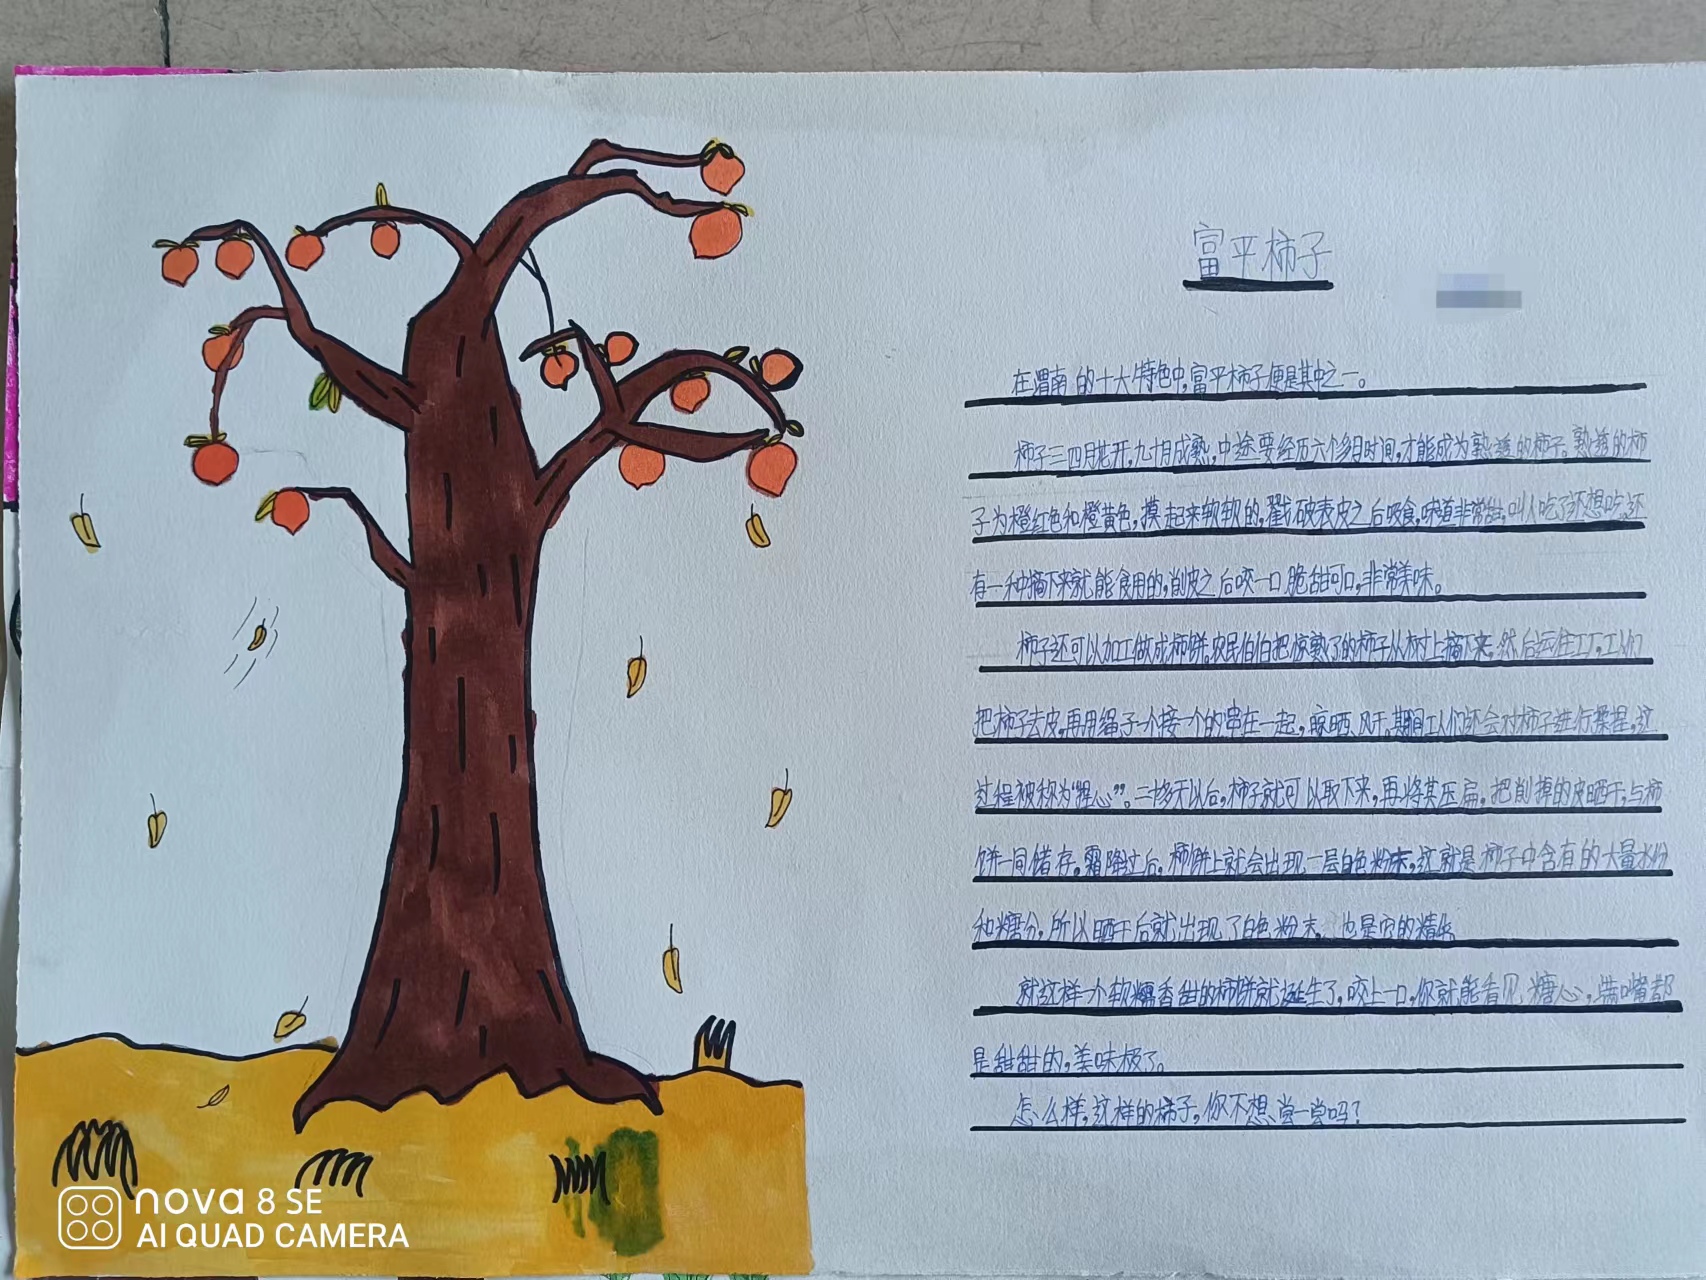 富平柿子
在渭南的十大特色中,富平柿子便是其中之一。
柿子三四月花开,九十月成熟,中途要经历六个多月时间,才能成为熟透的柿子。熟透的柿
子为橙红色和橙黄色,摸起来软软的,戳破表皮之后吸食,味道非常甜,叫人吃了还想吃,还
有一种摘下来就能食用的,削皮之后咬一口脆甜可口,非常美味。
柿子还可以加工做成柿饼,农民伯伯把成熟了的柿子从树上摘下来,然后运往工厂,工人们
把柿子去皮,再用绳子一个接一个的串在一起,晾晒、风干,期间工人们还会对柿子进行揉捏,这
过程被称为“捏心”。二十多天以后,柿子就可以取下来,再将其压扁。把削掉的皮晒干,与柿
饼一同储存。霜降过后,柿饼上就会出现一层白色粉末,这就是柿子中含有的大量水份
和糖分,所以晒干后就出现了白色粉末,也是它的精华
就这样一个软糯香甜的柿饼就诞生了,咬上一口,你就能看见糖心,满嘴都
是甜甜的,美味极了。
怎么样,这样的柿子,你不想尝一尝吗?
nova 8 SE
AI QUAD CAMERA